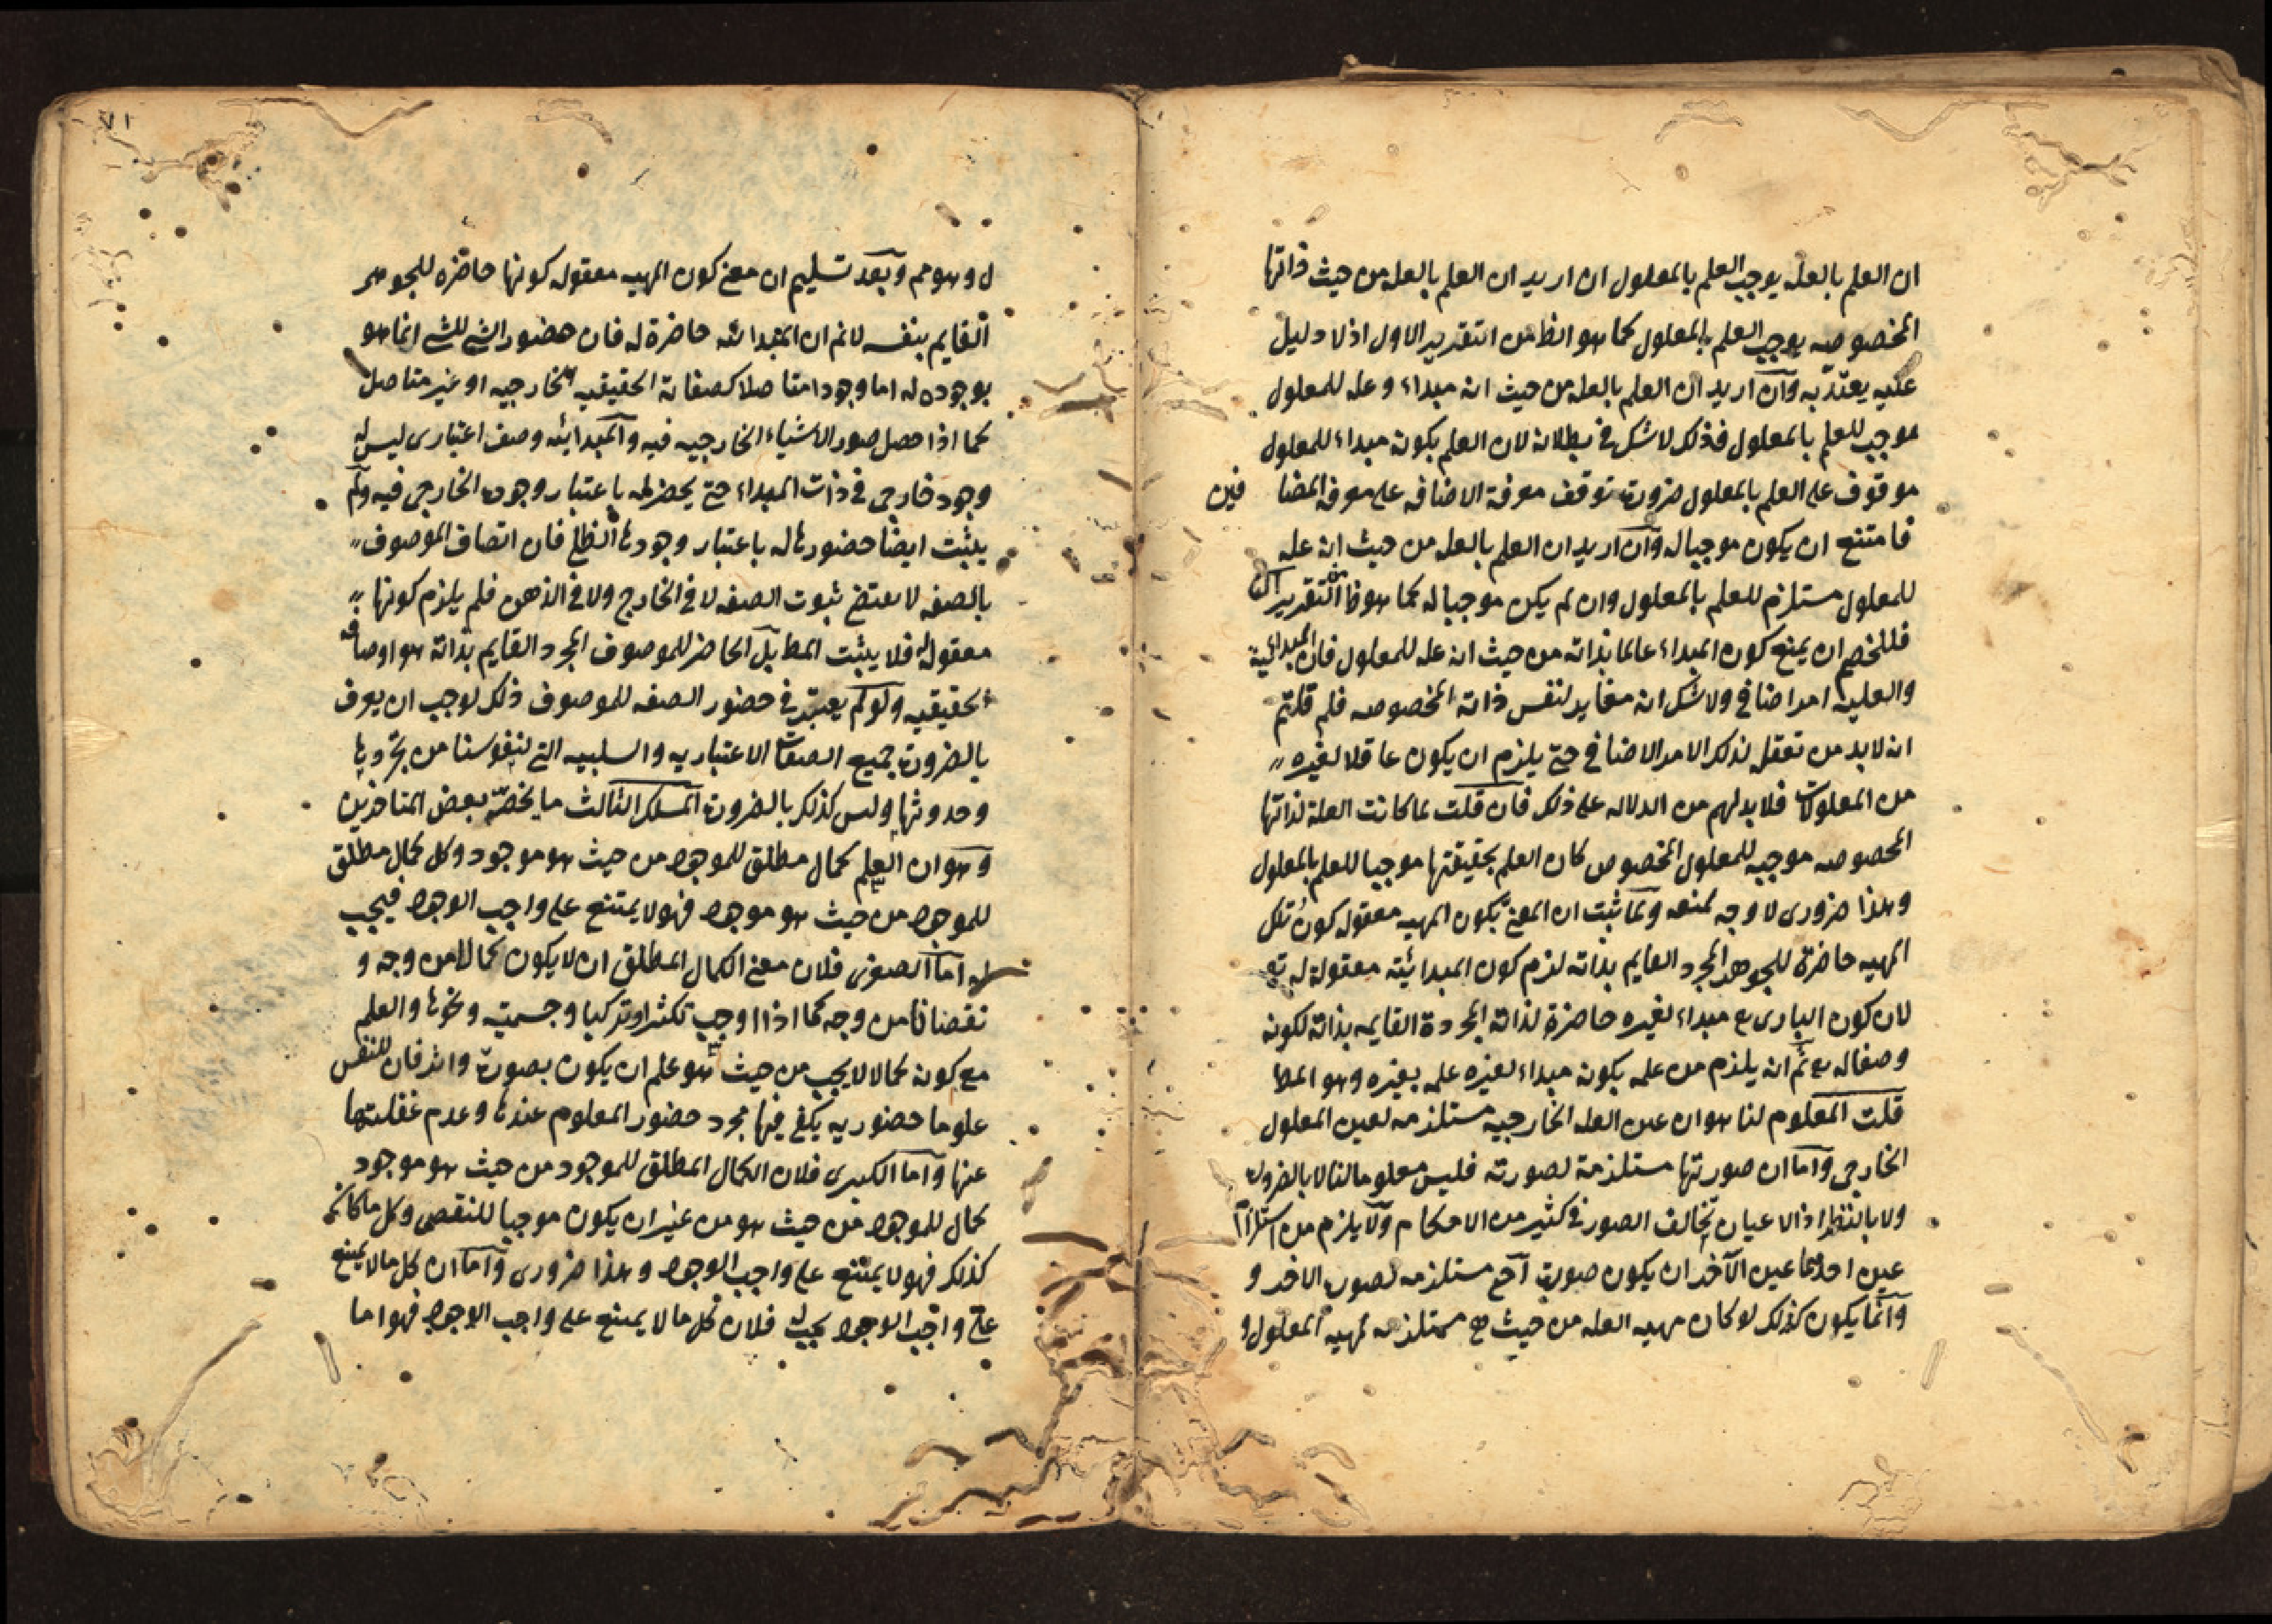 ان العلم بالعله يوجب العلم بالمعلول ان اريد ان العلم بالعله من حيث ذاتها
المخصوصه يوجب العلم بالمعلول كما هو الظ من التقدير الاول اذ لا دليل
عليه يعتد به وان اريد ان العلم بالعله من حيث انه مبداء وعله للمعلول
موجب للعلم بالمعلول فذلك لا شك في بطلانه لان العلم بكونه مبداء للمعلول
موقوف على العلم بالمعلول ضرورة توقف معرفة الاضافه على معرفة المضا فين
فامتنع ان يكون موجبا له وان اريد ان العلم بالعله من حيث انه عله
للمعلول مستلزم للعلم بالمعلول وان لم يكن موجبا له كما هو ظ من التقدير
فللخصم ان يمنع كون المبداء عالما بذاته من حيث انه عله للمعلول فان المبدائية
والعليه امر اضافي ولا شك انه مغاير لنفس ذاته المخصوصه فلم قلتم
انه لابد من تعقله لذلك الامر الاضافي حتى يلزم ان يكون عاقلا لغيره
من المعلولات فلابد لهم من الدلاله على ذلك فان قلت لما كانت العلة لذاتها
المخصوصه موجبه للمعلول المخصوص كان العلم بحقيقتها موجبا للعلم بالمعلول
وهذا ضروري لا وجه لمنعه ولما ثبت ان المعنى بكون المهيه معقوله كون تلك
المهيه حاضرة للجوهر المجرد القايم بذاته لزم كون المبدائيته معقولة له تع
لان كون الباري تع مبداء لغيره حاضرة لذاته المجردة القايمه بذاته لكونه
وصفا له تع ثم انه يلزم من علمه بكونه مبداء لغيره علمه بغيره وهو المط
قلت المعلوم لنا هو ان عين العله الخارجيه مستلزمه لعين المعلول
الخارجي واما ان صورتها مستلزمة لصورته فليس معلوما لنا لا بالضرورة
ولا بالنظر اذ الاعيان تخالف الصور في كثير من الاحكام ولا يلزم من استلزام
عين احدهما عين الآخر ان يكون صورة احدهما مستلزمه لصورة الاخر و
وانما يكون كذلك لو كان مهيه العله من حيث هي مستلزمه لمهيه المعلول و
٧١
ل وهو مم وبعد تسليم ان معنى كون المهيه معقوله كونها حاضره للجوهر
القايم بنفسه لانم ان المبدائيه حاضرة له فان حضور الشي للشي انما هو
بوجوده له اما وجودا متاصلا كصفاته الحقيقيه الخارجيه او غير متاصل
كما اذا حصل صور الاشياء الخارجيه فيه والمبدائيه وصف اعتباري ليس له
وجود خارجي في ذات المبداء حتى يحضر له باعتبار وجوده الخارجي فيه ولم
يثبت ايضا حضورها له باعتبار وجودها الظلي فان اتصاف الموصوف
بالصفه لا يقتضي ثبوت الصفه لا في الخارج ولا في الذهن فلم يلزم كونها
معقوله له فلا يثبت المط بل الحاضر للموصوف المجرد القايم بذاته هو اوصافه
الحقيقيه ولو لم يعتبر في حضور الصفه للموصوف ذلك لوجب ان يعرف
بالضرورة جميع الصفات الاعتباريه والسلبيه التي لنفوسنا من تجردها
وحدوثها وليس كذلك بالضرورة المسلك الثالث ما يخصه بعض المتاخرين
وهو ان العلم كمال مطلق للموجود من حيث هو موجود وكل كمال مطلق
للموجود من حيث هو موجود فهو لا يمتنع على واجب الوجود فيجب
له اما الصغرى فلان معنى الكمال المطلق ان لا يكون كمالا من وجه و
نقصانا من وجه كما اذا اوجب تكثرا وتركبا وجسميته ونحوها والعلم
مع كونه كمالا لا يجب من حيث هو علم ان يكون بصورة واثر فان للنفس
علوما حضوريه يكفي فيها مجرد حضور المعلوم عندها وعدم غفلتها
عنها واما الكبرى فلان الكمال المطلق للموجود من حيث هو موجود
كمال للموجود من حيث هو من غير ان يكون موجبا للنقص وكل ما كان
كذلك فهو لا يمتنع على واجب الوجود وهذا ضروري واما ان كل ما لا يمتنع
على واجب الوجود يجب له فلان كل ما لا يمتنع على واجب الوجود فهو اما